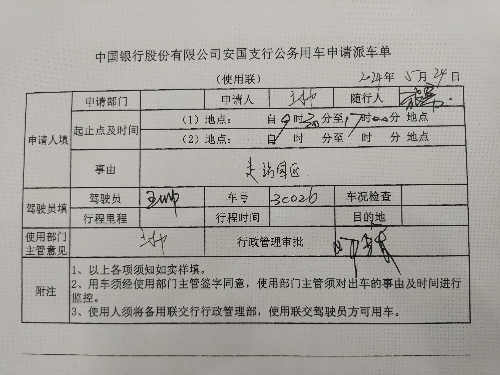 中国银行股份有限公司安国支行公务用车申请派车单
(使用联) 2024年5月24日
申请人填 申请部门 申请人 随行人
起止点及时间 (1) 地点: 自9时30分至17时00分 地点
(2) 地点: 自 时 分至 时 分 地点
事由 走访园区
驾驶员填 驾驶员 车号 3C026 车况检查
行程里程 行程时间 目的地
使用部门主管意见 行政管理审批
附注 1、以上各项须知如实样填。
2、用车须经使用部门主管签字同意,使用部门主管须对出车的事由及时间进行
监控。
3、使用人须将备用联交行政管理部,使用联交驾驶员方可用车。